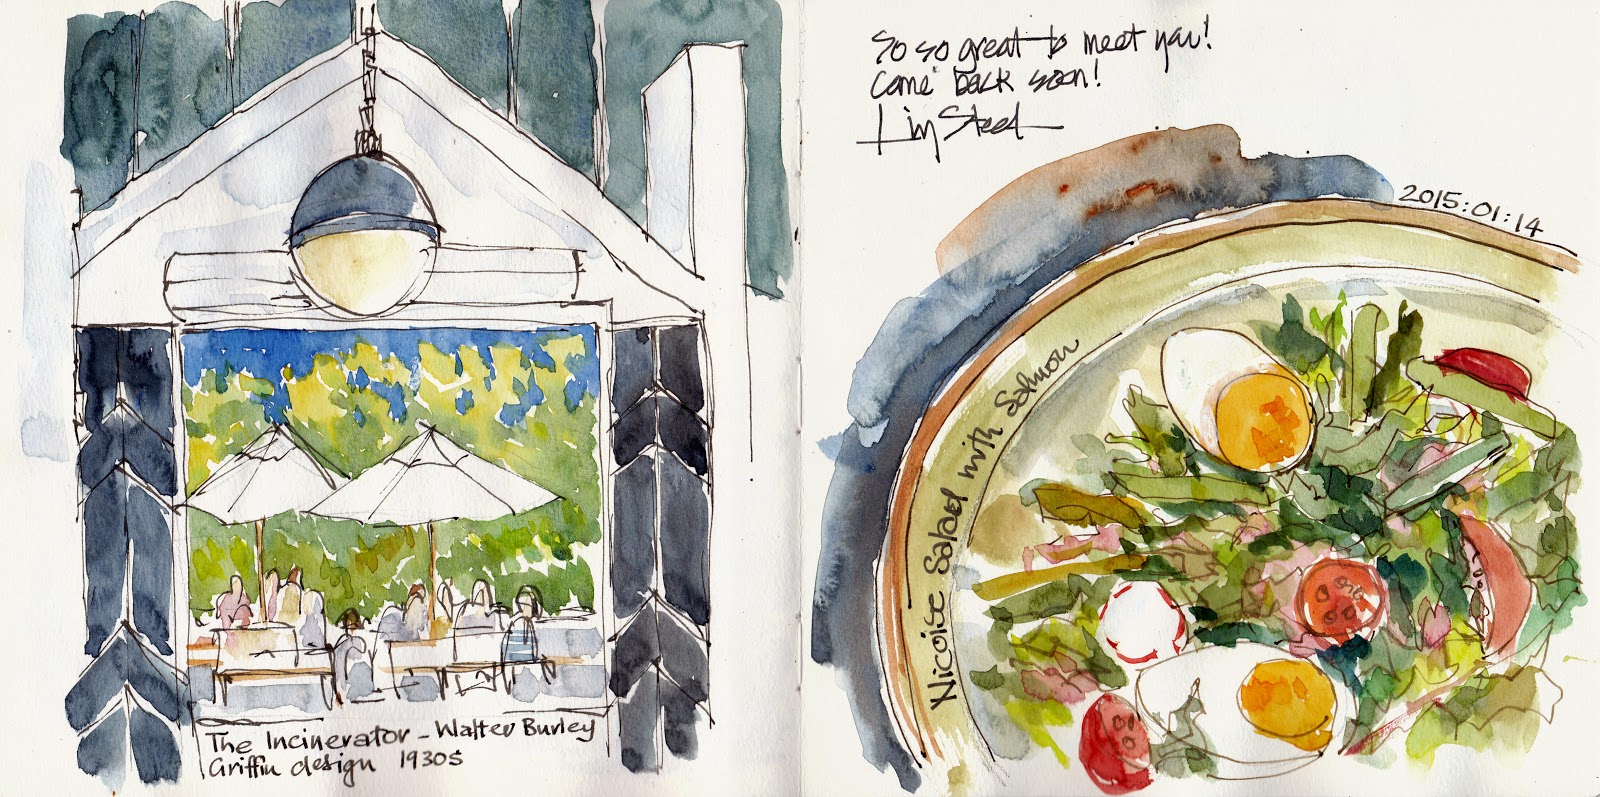 The Incinerator - Walter Burley
Griffin design 1930s
So so great to meet you!
Come back soon!
Liz Steel
2015:01:14
Nicoise Salad with Salmon